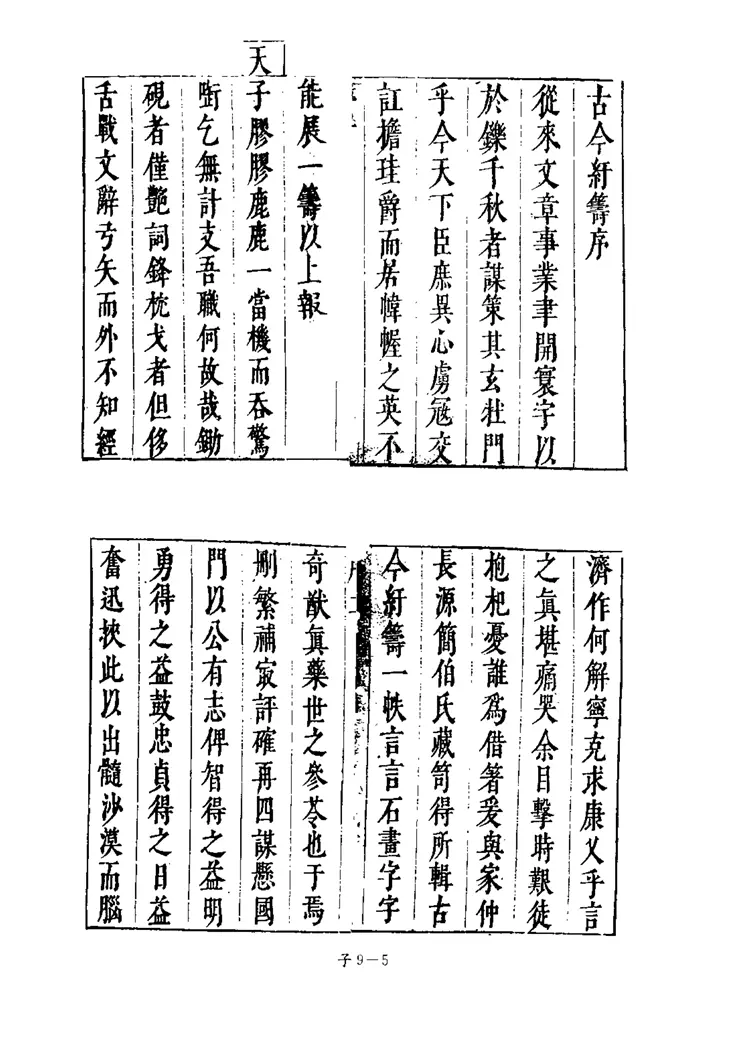 古今紆籌序
從來文章事業聿開寰宇以
於鑠千秋者謀策其玄牡門
乎今天下臣庶異心虜寇交
訌擔珪爵而居幃幄之英不
能展一籌以上報
天子膠膠鹿鹿一當機而吞驚
噬乞無計支吾職何故哉鋤
硯者僅艷詞鋒枕戈者但侈
舌戰文辭弓矢而外不知經
濟作何解寧克求康乂乎言
之真堪痛哭余目擊時艱徒
抱杞憂誰爲借箸爰與家仲
長源簡伯氏藏笥得所輯古
今紆籌一帙言言石畫字字
奇猷真藥世之參苓也于焉
刪繁補㝡評確再四謀懸國
門以公有志俾智得之益明
勇得之益鼓忠貞得之日益
奮迅挾此以出髓沙漠而腦
子9—5